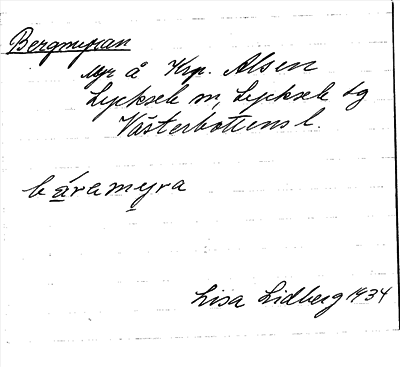 Bergmyran
Myr å Krp. Alsen
Lycksele sn, Lycksele tg
Västerbottens l.
báramyra
Lisa Lidberg 1934